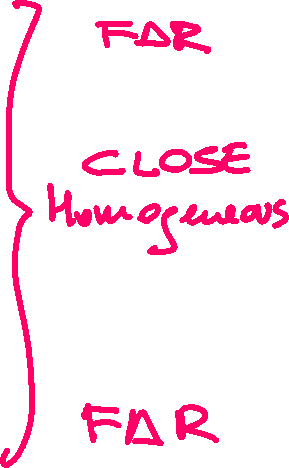 FAR
CLOSE
Homogeneous
FAR